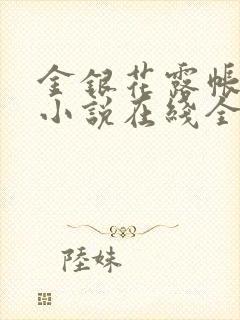 金銀花露帳
小說在綫全
陸妹